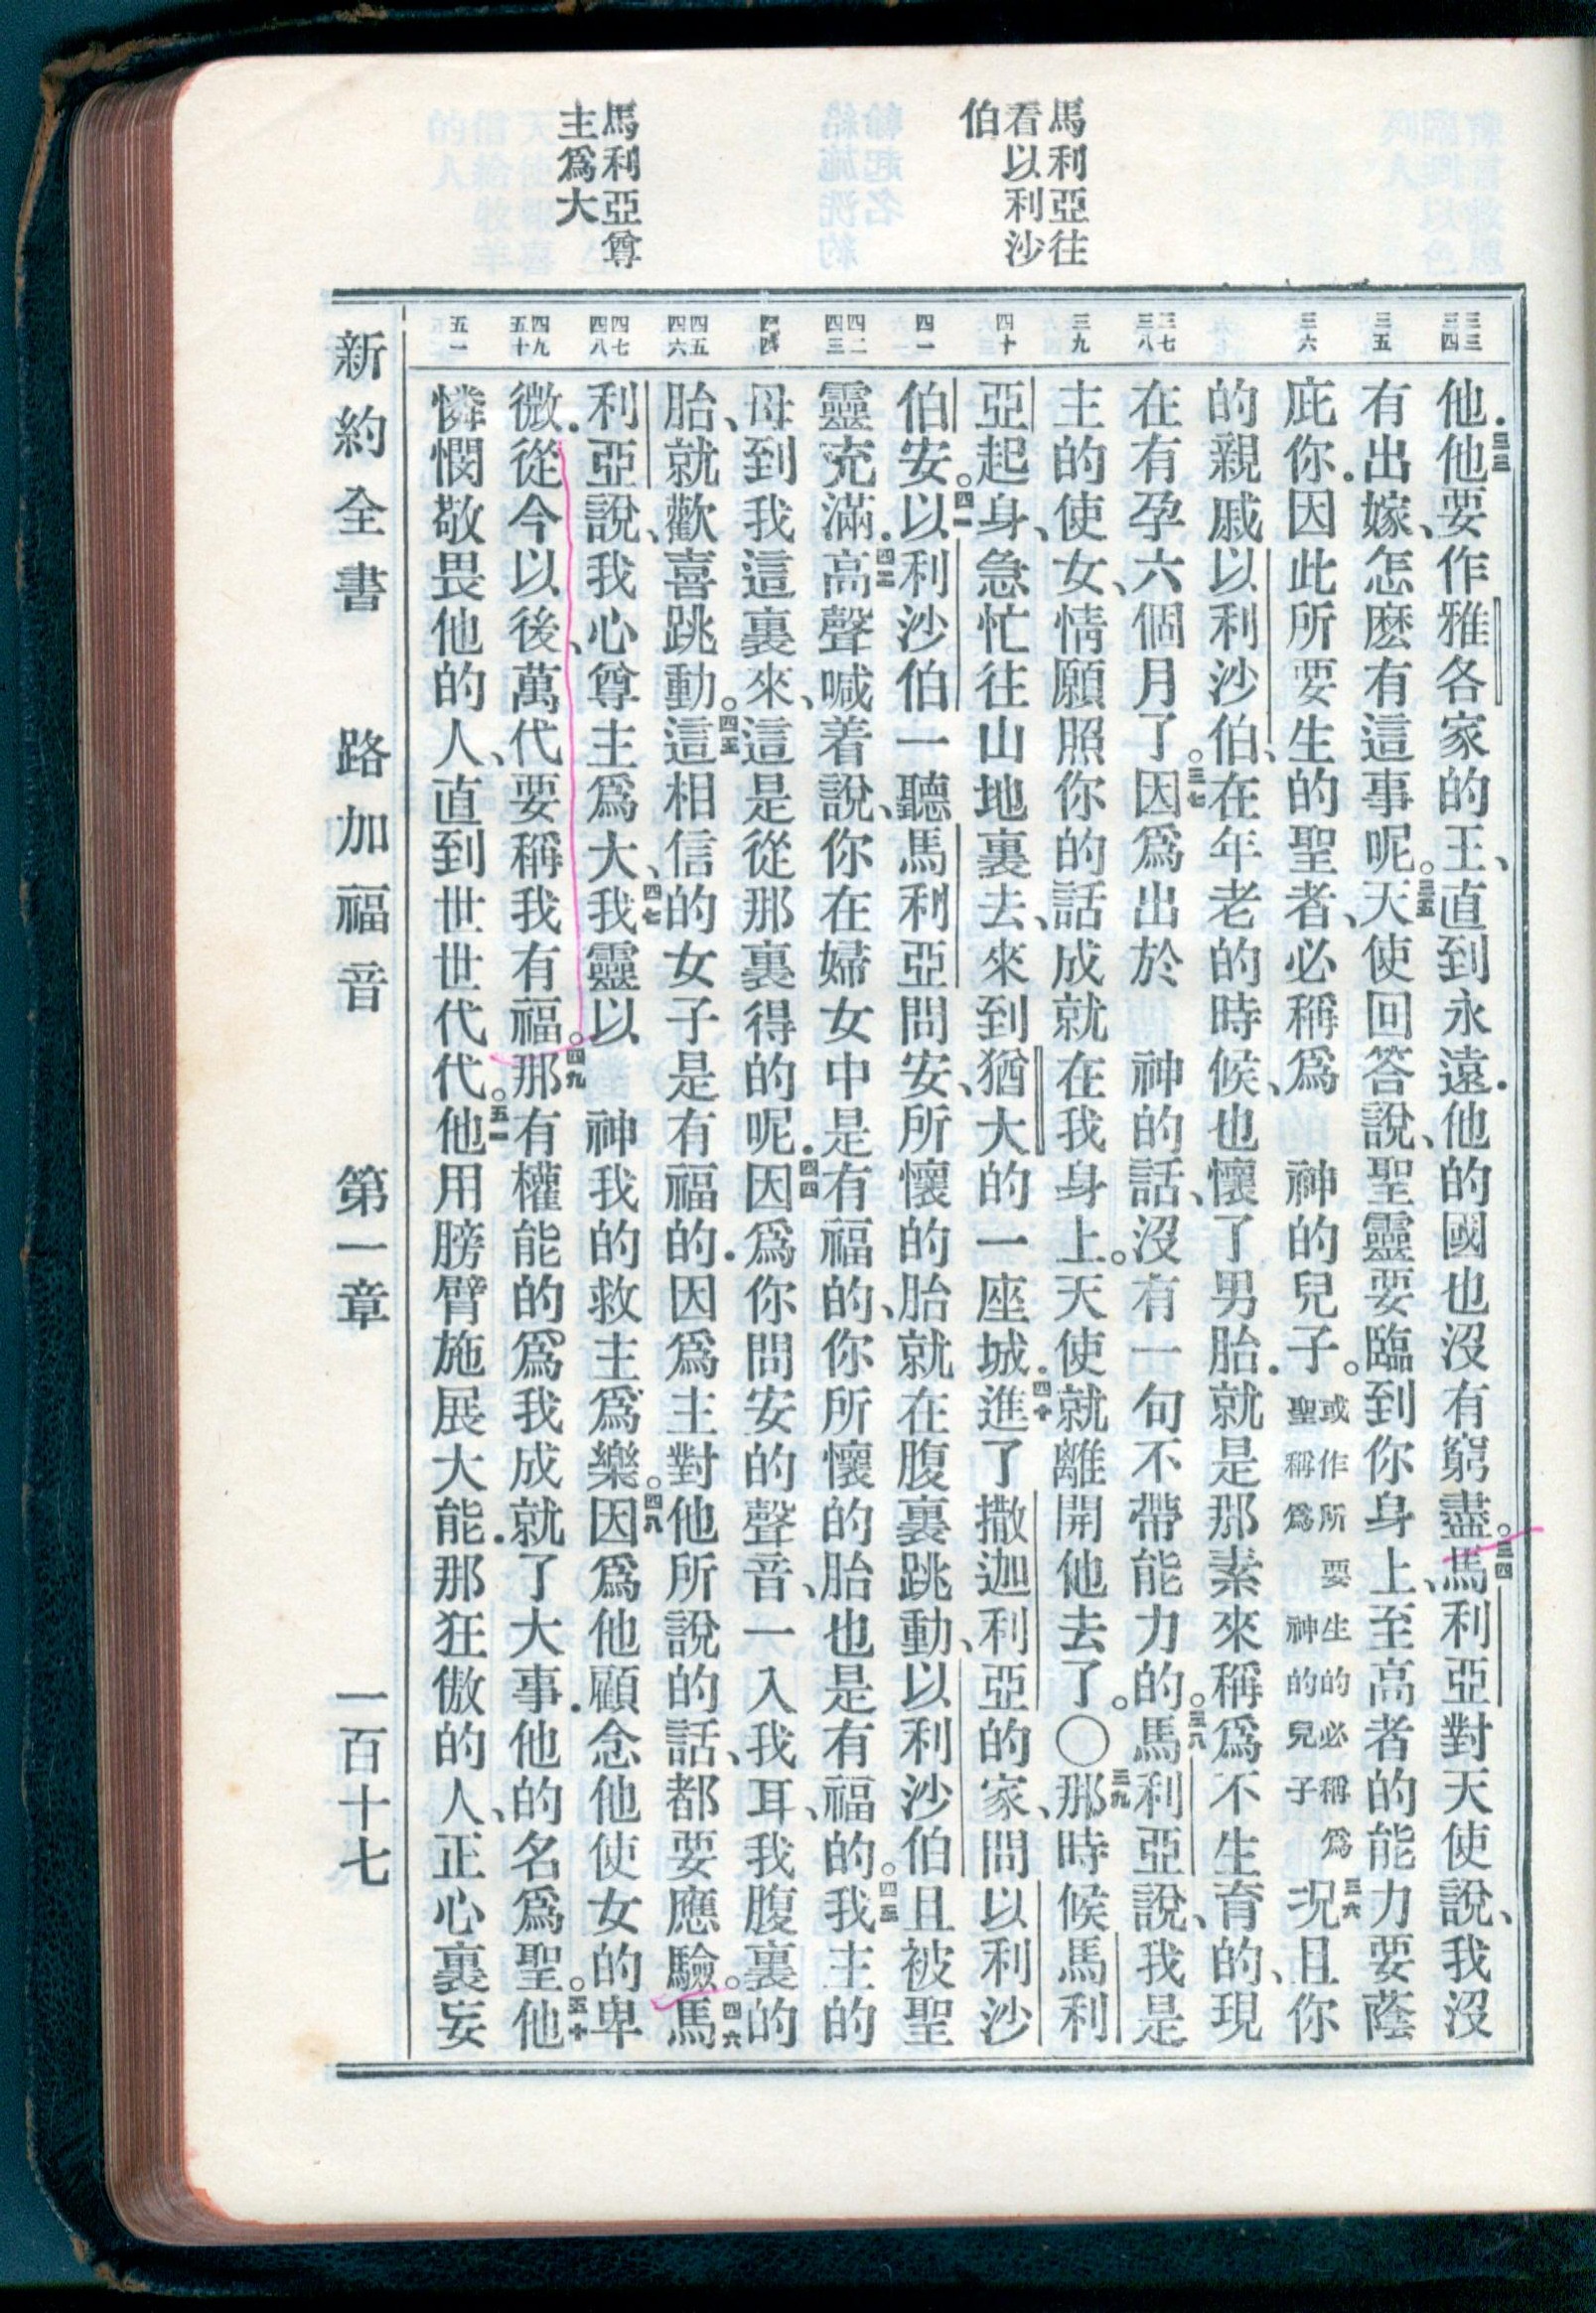 馬利亞往
看以利沙
伯
馬利亞尊
主爲大
三三 三四
三五
三六
三七 三八
三九
四十
四一
四二 四三
四四
四五 四六
四七 四八
四九 五十
五一
他．三三他要作雅各家的王、直到永遠．他的國也沒有窮盡。三四馬利亞對天使說、我沒
有出嫁、怎麽有這事呢。三五天使回答說、聖靈要臨到你身上、至高者的能力要蔭
庇你．因此所要生的聖者、必稱爲 神的兒子。或作所要生的必稱爲聖稱爲神的兒子三六況且你
的親戚以利沙伯、在年老的時候、也懷了男胎．就是那素來稱爲不生育的、現
在有孕六個月了。三七因爲出於 神的話、沒有一句不帶能力的。三八馬利亞說、我是
主的使女、情願照你的話成就在我身上。天使就離開他去了。〇三九那時候馬利
亞起身、急忙往山地裏去、來到猶大的一座城．四十進了撒迦利亞的家、問以利沙
伯安。四一以利沙伯一聽馬利亞問安、所懷的胎就在腹裏跳動、以利沙伯且被聖
靈充滿．四二高聲喊着說、你在婦女中是有福的、你所懷的胎也是有福的。四三我主的
母到我這裏來、這是從那裏得的呢．四四因爲你問安的聲音、一入我耳、我腹裏的
胎、就歡喜跳動。四五這相信的女子是有福的．因爲主對他所說的話、都要應驗。四六馬
利亞說、我心尊主爲大、四七我靈以 神我的救主爲樂。四八因爲他顧念他使女的卑
微．從今以後、萬代要稱我有福。四九那有權能的爲我成就了大事．他的名爲聖。五十他
憐憫敬畏他的人、直到世世代代。五一他用膀臂施展大能．那狂傲的人、正心裏妄
新約全書 路加福音 第一章 一百十七